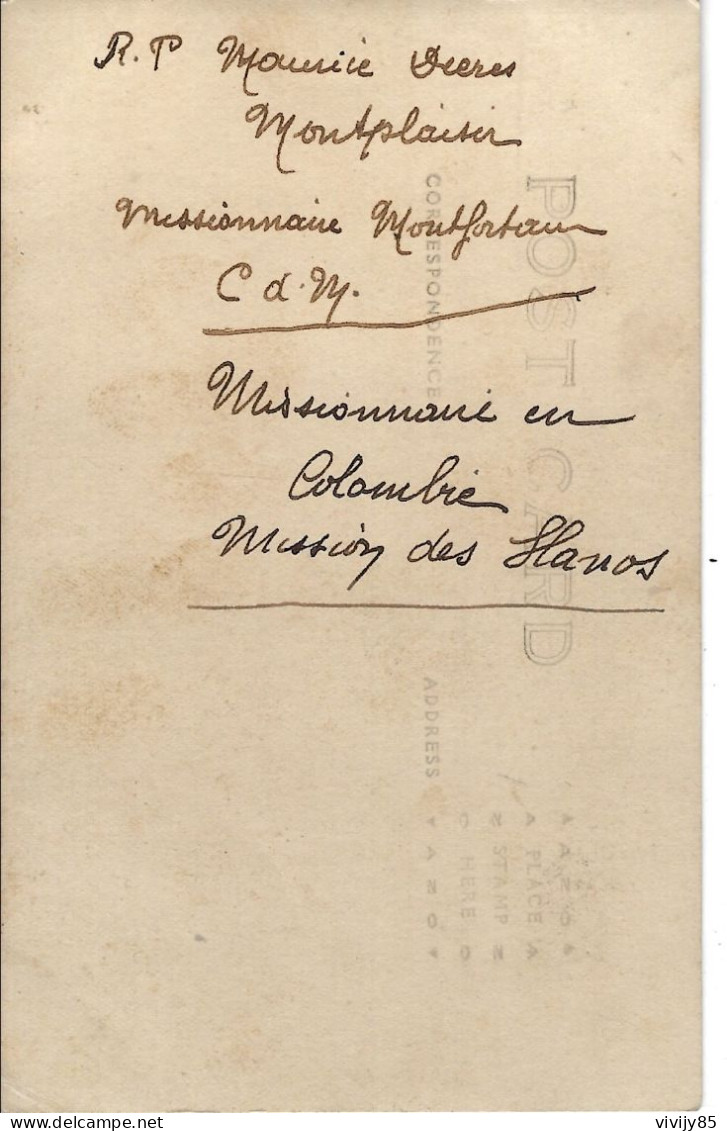 R. P Maurice Dieres
Montplaisir
Missionnaire Montfortain
C d. M.
Missionnaire en
Colombie
Mission des Llanos
POST CARD
CORRESPONDENCE
ADDRESS
AZO
PLACE
STAMP
HERE
AZO
vivijy85